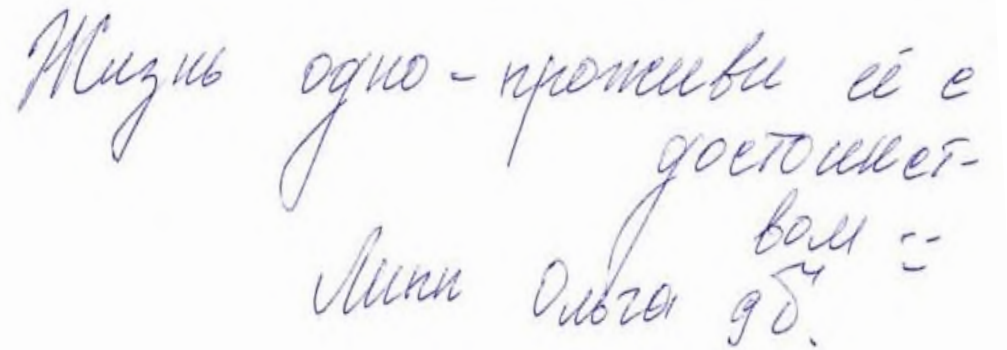 Жизнь одно - проживи её с
достоинст-
вом :-
Липп Ольга 9б.